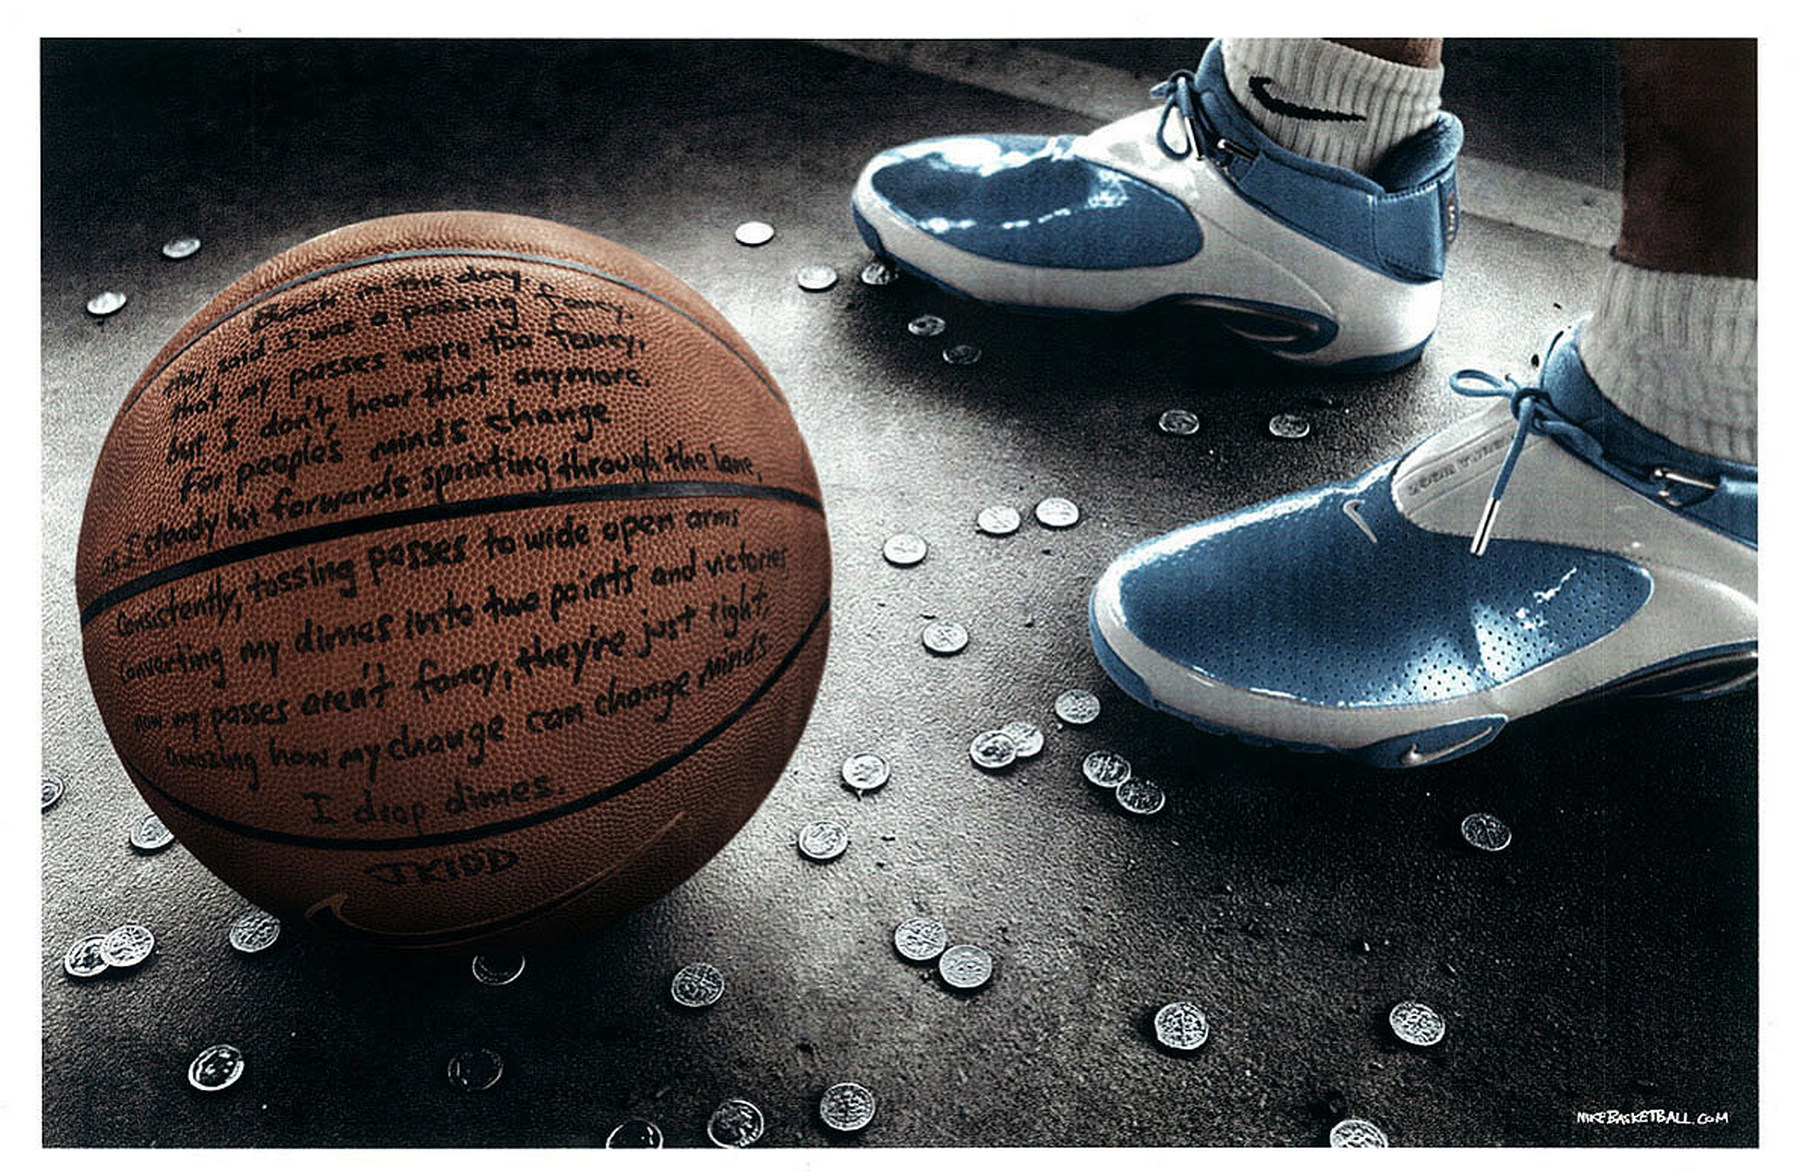 Back in the day,
they said I was a passing fancy,
that my passes were too fancy,
but I don't hear that anymore.
for people's minds change
as I steady hit forwards sprinting through the lane,
Consistently, tossing passes to wide open arms
Converting my dimes into two points and victories
now my passes aren't fancy, they're just right.
amazing how my change can change minds.
I drop dimes.
JKIDD
ZOOM
NIKEBASKETBALL.COM